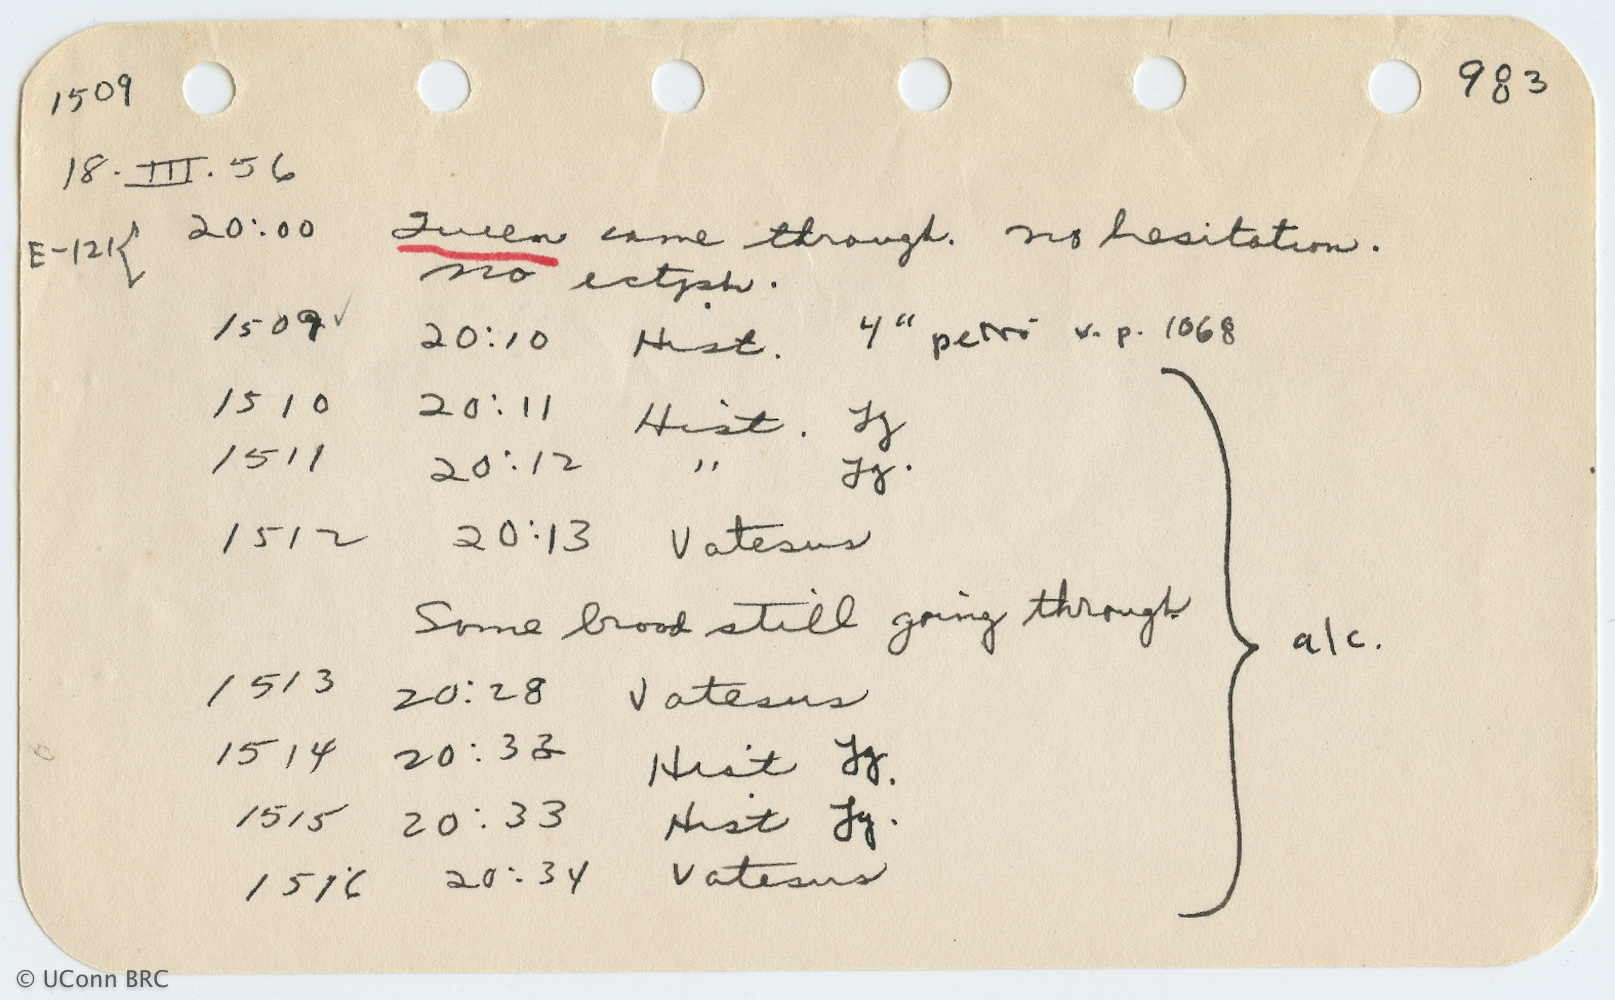 1509 983
18.III.56
E-121{ 20:00 Queen came through. no hesitation.
no ectph.
1509✓ 20:10 Hist. 4" petri v. p. 1068
1510 20:11 Hist.
1511 20:12 "
1512 20:13 Vatesus
Some brood still going through
a/c.
1513 20:28 Vatesus
1514 20:33 Hist
1515 20:33 Hist
1516 20:34 Vatesus
© UConn BRC